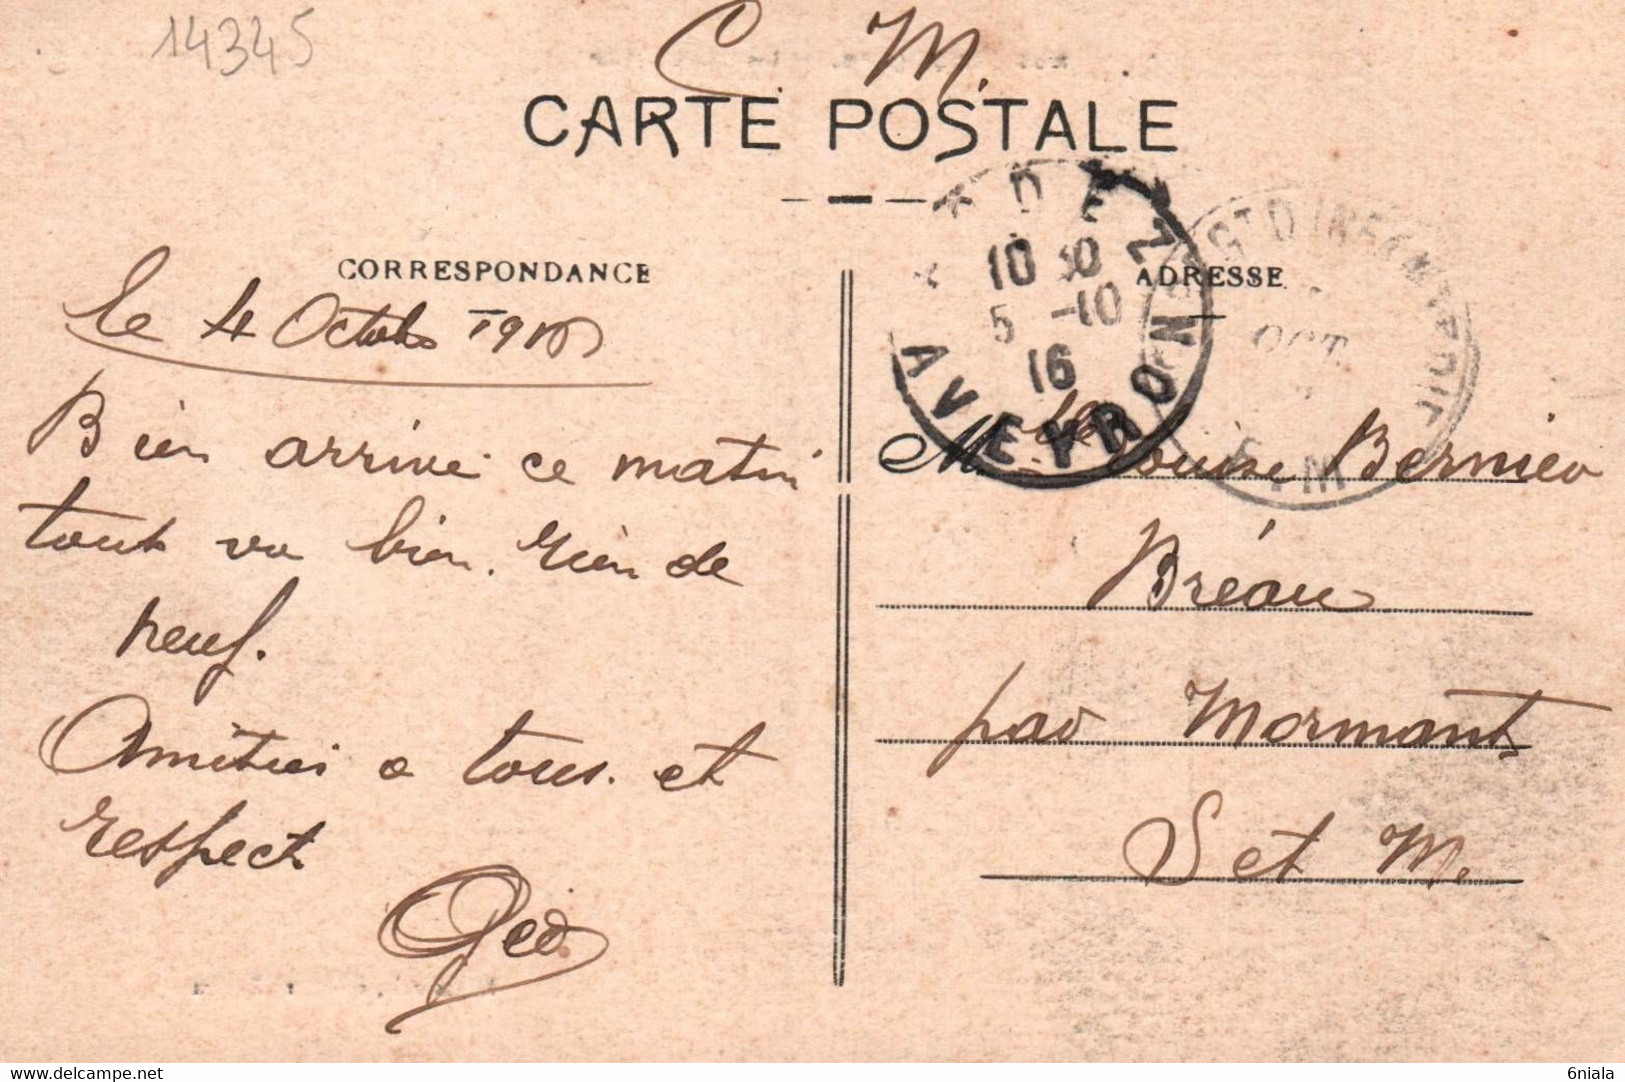 14345
C. M.
CARTE POSTALE
CORRESPONDANCE
le 4 Octobre 1916
Bien arrivé ce matin
tout va bien. rien de
neuf.
Amitiés a tous. et
respect
Geo.
ADRESSE
RODEZ
10 30
5 -10
16
AVEYRON
OCT
Melle Louise Bernier
Bréau
par Mormant
S et M.
delcampe.net
6niala